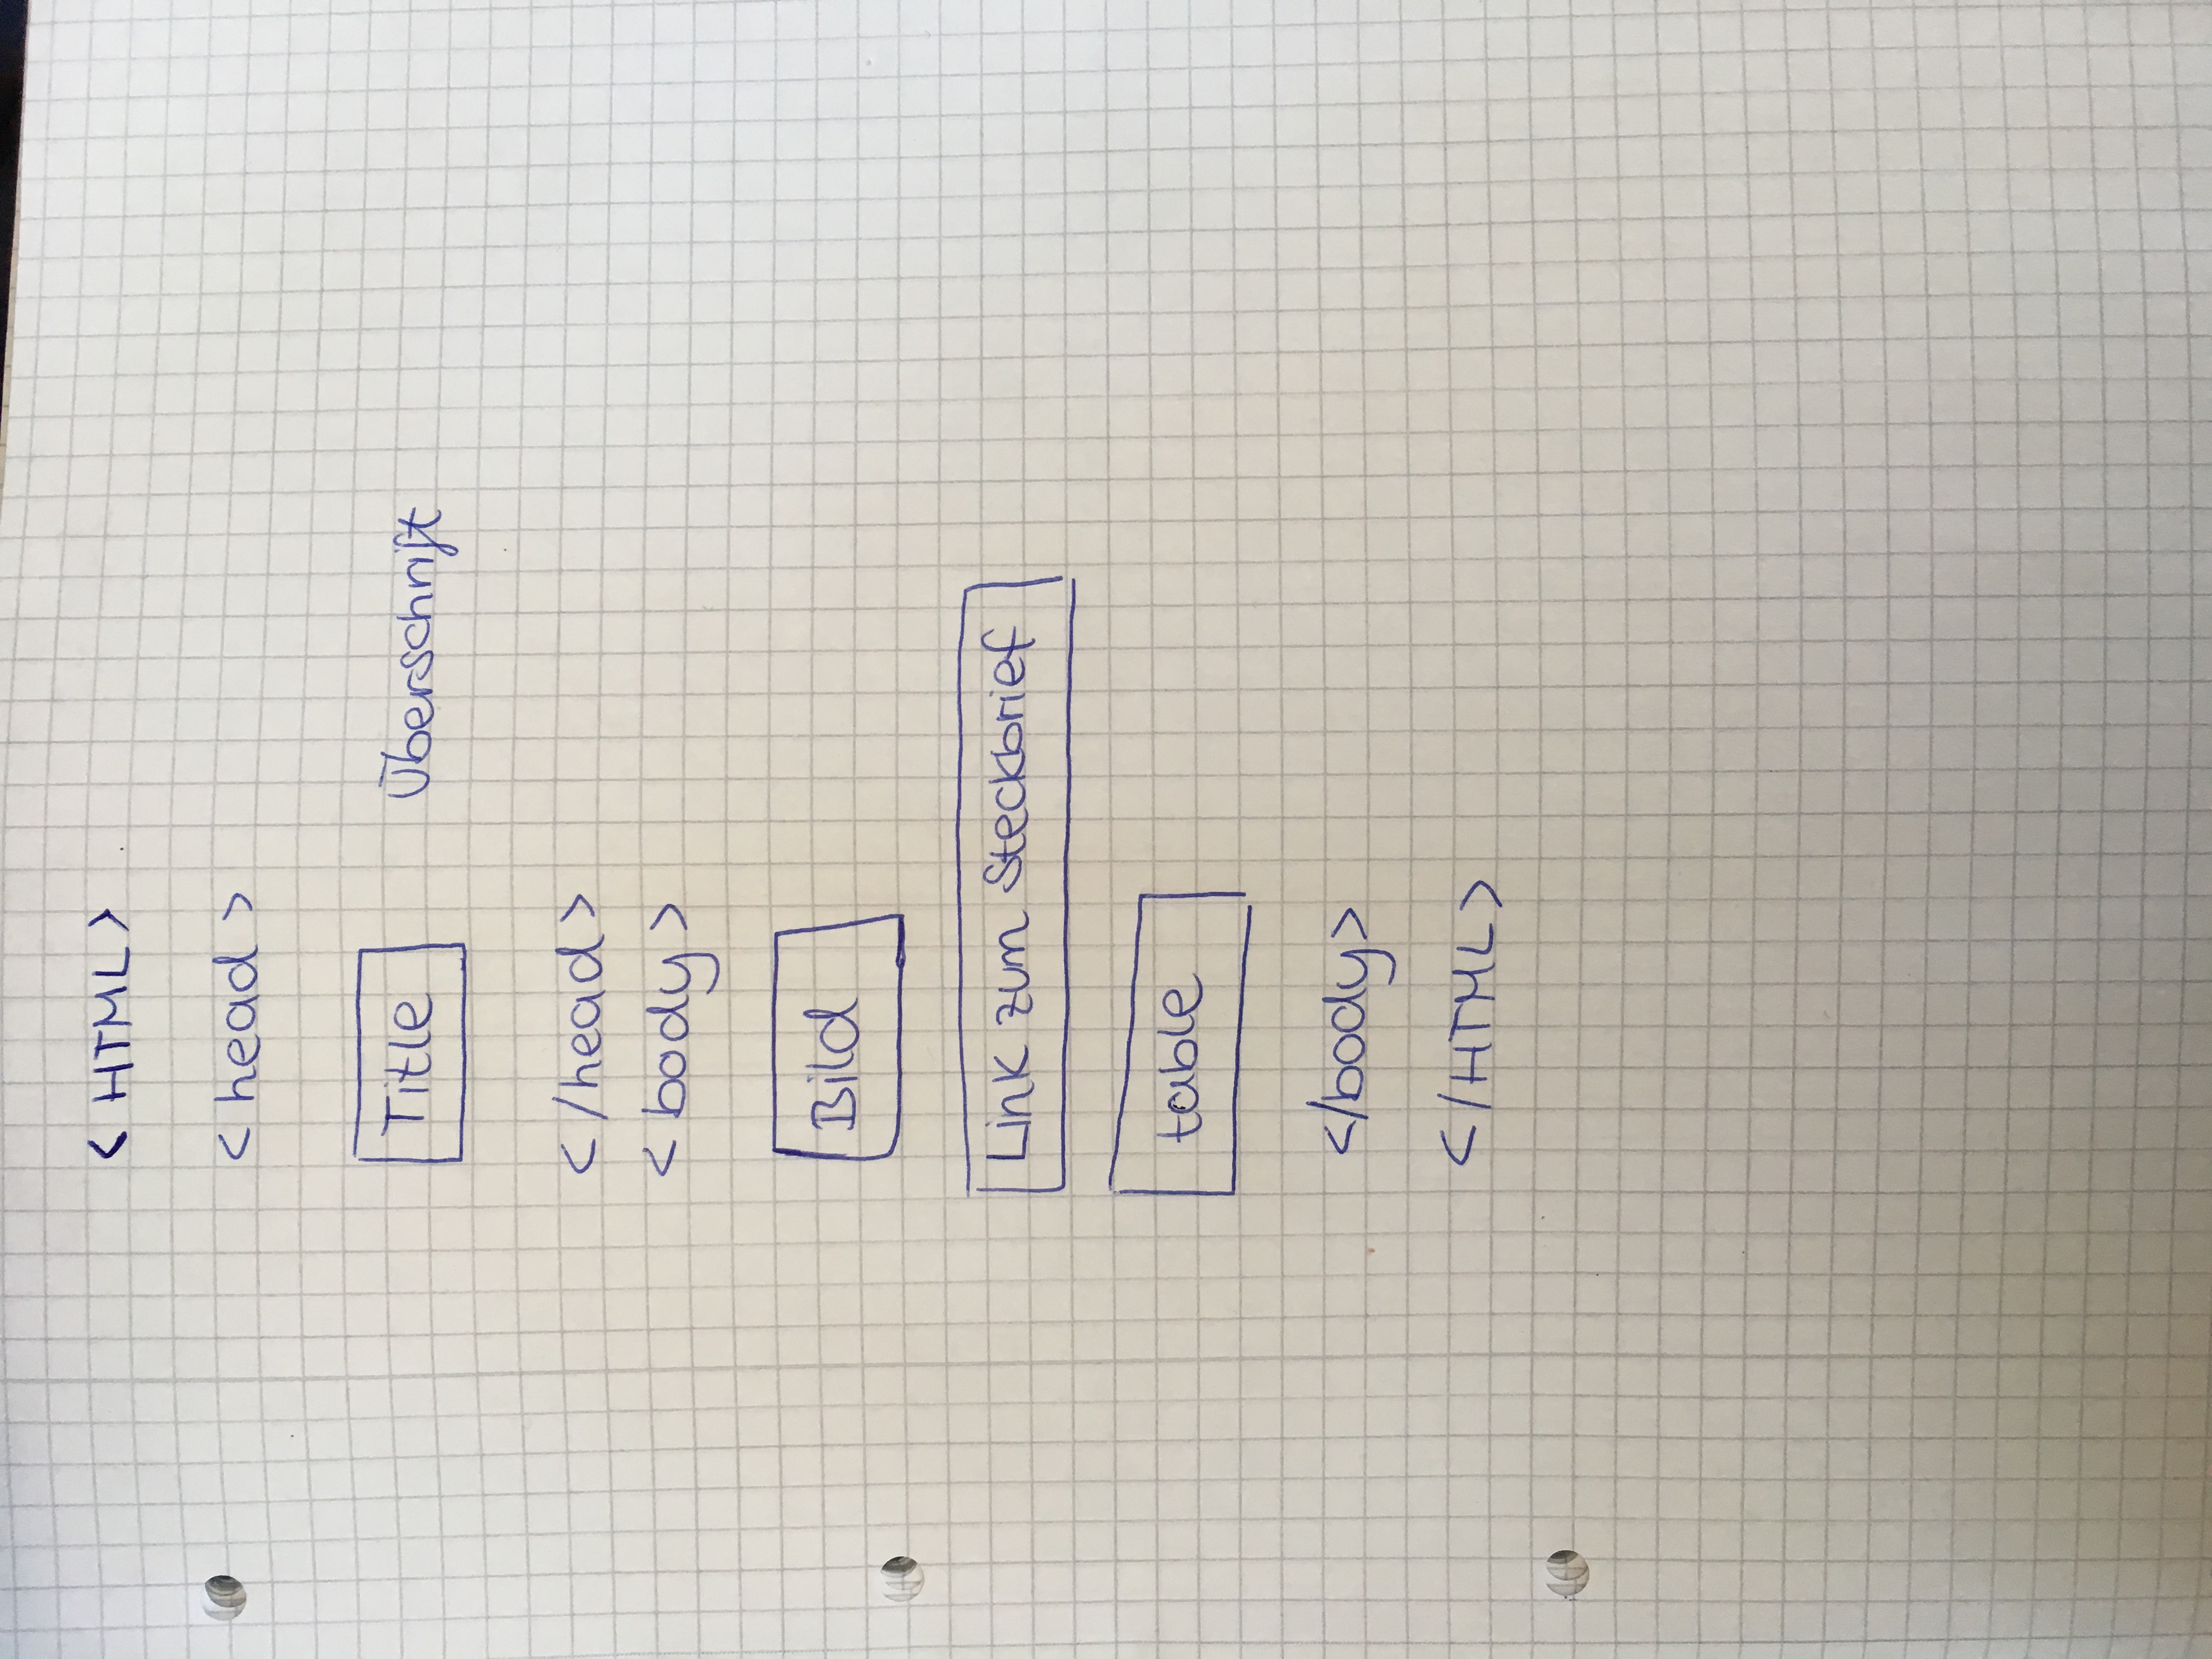 < HTML >
< head >
Title Überschrift
</head>
< body >
Bild
Link zum Steckbrief
table
</body>
</HTML>